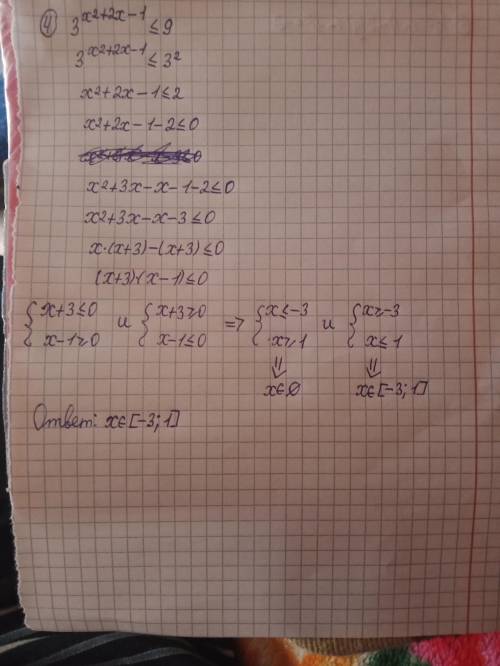 ④ 3^(x²+2x-1) ≤ 9
3^(x²+2x-1) ≤ 3²
x²+2x-1≤2
x²+2x-1-2≤0
x²+3x-x-1-2≤0
x²+3x-x-3≤0
x·(x+3)-(x+3)≤0
(x+3)·(x-1)≤0
{x+3≤0 и {x+3≥0 => {x≤-3 и {x≥-3
x-1≥0 x-1≤0 x≥1 x≤1
⇓ ⇓
x∈∅ x∈[-3;1]
Ответ: x∈[-3;1]